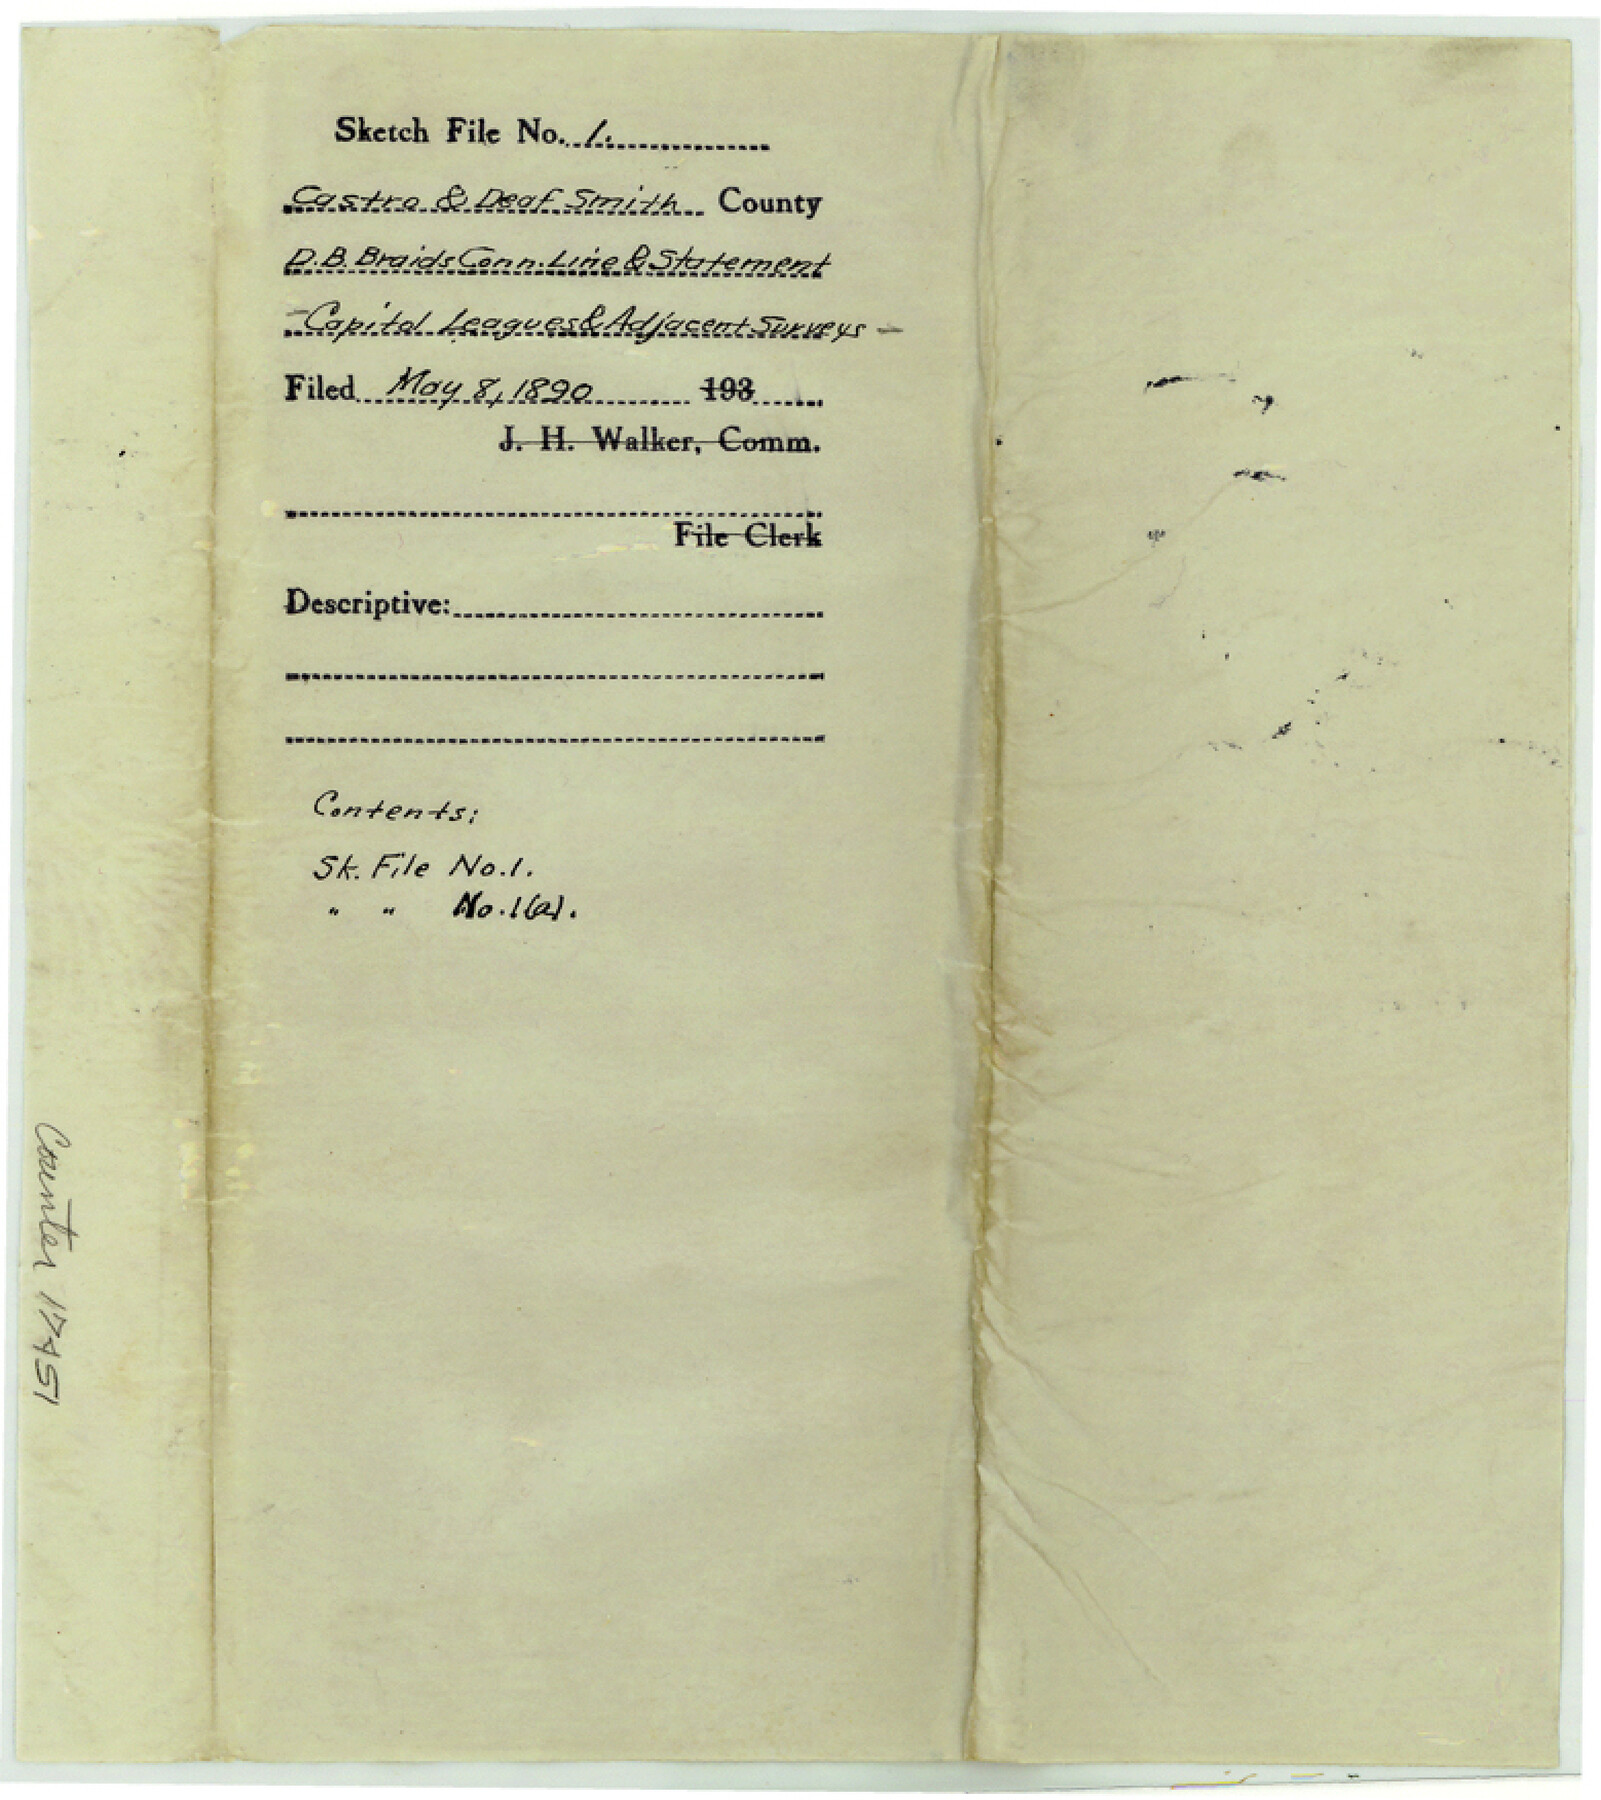 Sketch File No. 1.
Castro & Deaf Smith County
D.B. Braids Conn. Line & Statement
- Capitol Leagues & Adjacent Surveys -
Filed May 8, 1890 193
J. H. Walker, Comm.
File Clerk
Descriptive:
Contents:
Sk. File No. 1.
" " No. 1(a).
Counter 17451